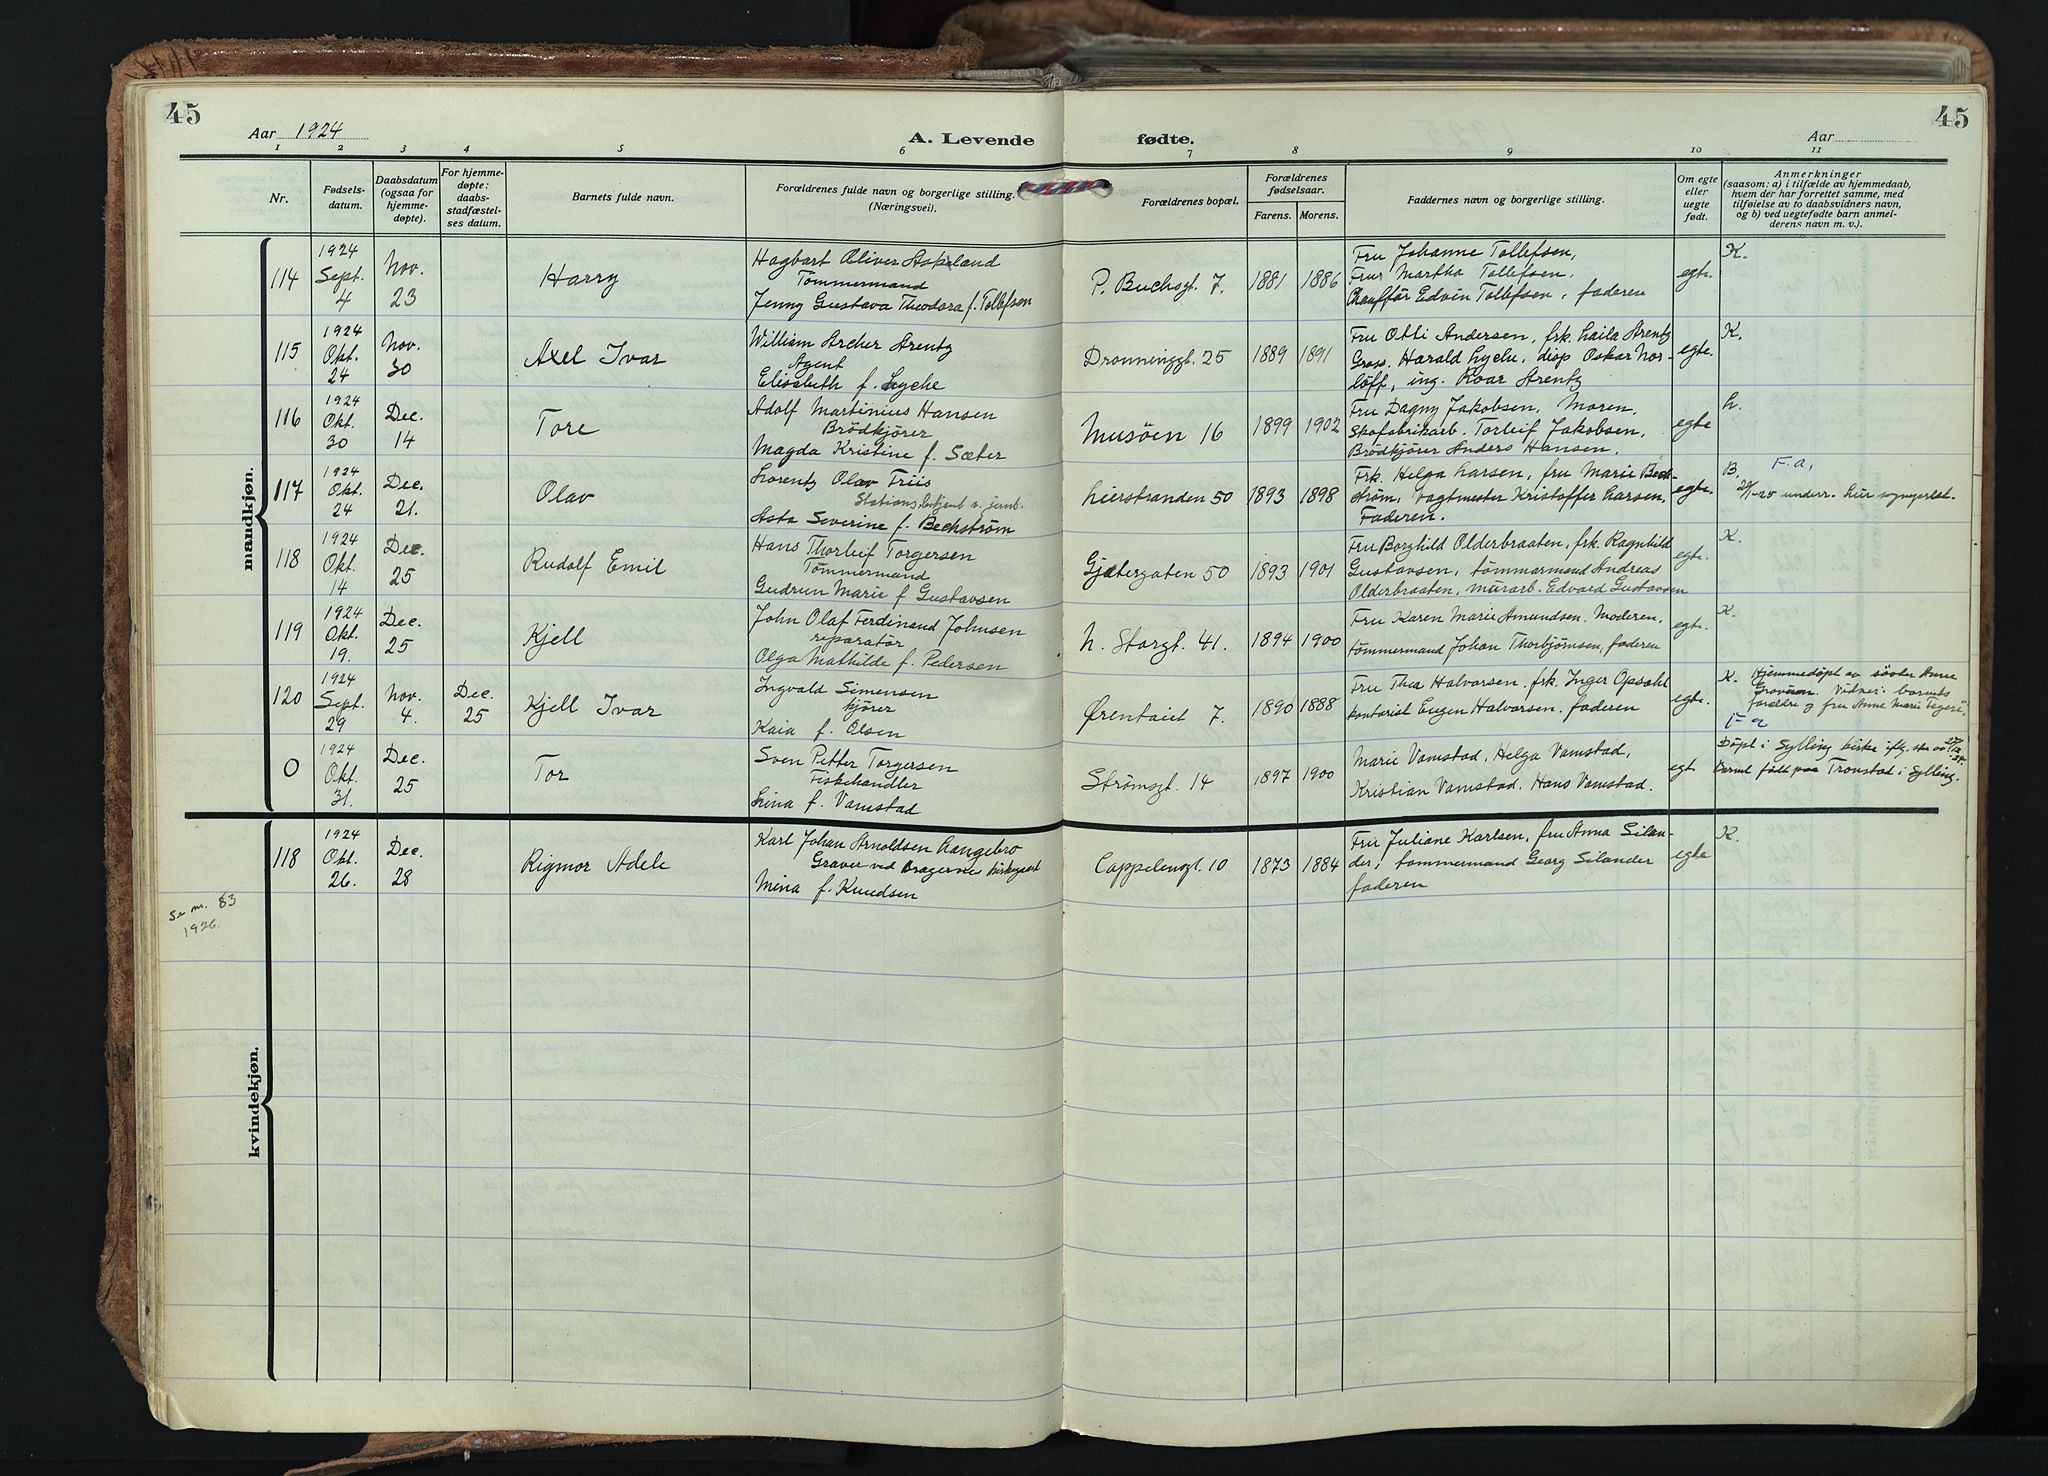 45
45
Aar 1924
A. Levende fødte.
Aar
1 2 3 4 5 6 7 8 9 10 11
Nr.
Fødsels-
datum.
Daabsdatum
(ogsaa for
hjemme-
døpte).
For hjemme-
døpte:
daabs-
stadfæstel-
ses datum.
Barnets fulde navn.
Forældrenes fulde navn og borgerlige stilling.
(Næringsvei).
Forældrenes bopæl.
Forældrenes
fødselsaar.
Farens. Morens.
Faddernes navn og borgerlige stilling.
Om egte
eller
uegte
født.
Anmerkninger
(saasom: a) i tilfælde av hjemmedaab,
hvem der har forrettet samme, med
tilføielse av to daabsvidners navn,
og b) ved uegtefødte barn anmel-
derens navn m. v.).
mandkjøn.
114
1924
Sept.
4
Nov.
23
Harry
Hagbart Oliver Askeland
Tömmermand
Jenny Gustava Theodora f. Tollefsen
P. Buchsgt. 7.
1881 1886
Fru Johanne Tollefsen,
Frur Martha Tollefsen,
Chaufför Edvin Tollefsen, faderen
egte.
K.
115
1924
Okt.
24
Nov.
30
Axel Ivar
William Archer Arentz
Agent
Elisabeth f. Lyche
Dronninggt. 25
1889 1891
Fru Otti Andersen, frk. Laila Arentz
Gross. Harald Lyche, disp Oskar Nor-
löff, ing. Roar Arentz
egte.
K.
116
1924
Okt.
30
Dec.
14
Tore
Adolf Martinius Hansen
Brödkjörer
Magda Kristine f. Sæter
Musöen 16
1899 1902
Fru Dagny Jakobsen, Moren,
Skofabrikarb. Torleif Jakobsen,
Brödkjörer Anders Hansen.
egte
L.
117
1924
Okt.
24
Dec.
21.
Olav
Lorentz Olav Friis
Stationsbetjent v. jernb.
Asta Severine f. Bechström
Lierstranden 50
1893 1898
Frk. Helga Larsen, fru Marie Bech-
ström, Vagtmester Kristoffer Larsen,
Faderen.
egte.
B. F. a.
underr. Lier sogneprest.
118
1924
Okt.
14
Dec.
25
Rudolf Emil
Hans Thorleif Torgersen
Tömmermand
Gudrun Marie f Gustavsen
Gjetergaten 50
1893 1901
Fru Borghild Olderbraaten, frk. Ragnhild
Gustavsen, tömmermand Andreas
Olderbraaten, murarb. Edvard Gustavsen
egte.
K.
119
1924
Okt.
19.
Dec.
25
Kjell
John Olaf Ferdinand Johnsen
reparatör
Olga Mathilde f. Pedersen
N. Storgt. 41.
1894 1900
Fru Karen Marie Amundsen. Moderen,
tömmermand Johan Thorbjörnsen, faderen
egte.
K.
120
1924
Sept.
29
Nov.
4.
Dec.
25
Kjell Ivar
Ingvald Simensen
kjörer
Kaia f. Olsen
Ørentaiet 7.
1890 1888
Fru Thea Halvorsen. frk. Inger Opsahl
kontorist Eugen Halvorsen. faderen
egte.
K. Hjemmedöpt av söster Anne
Vidner: barnets
forældre og fru Anne Marie
F a
0
1924
Okt.
31.
Dec.
25
Tor
Sven Petter Torgersen
Fiskehandler
Lina f. Vamstad
Strömsgt. 14
1897 1900
Marie Vamstad, Helga Vamstad,
Kristian Vamstad. Hans Vamstad.
egt.
Döpt i Sylling kirke iflg.
Barnet födt paa Tronstad i Sylling.
kvindekjøn.
118
1924
Okt.
26.
Dec.
28
Rigmor Adele
Karl Johan Arnoldsen Langebro
Graver ved Bragernes kirkegaard
Mina f. Knudsen
Cappelensgt. 10
1873 1884
Fru Juliane Karlsen, fru Anna Silan-
der, tommermand Georg Silander
faderen
egte
K.
Se nr. 83
1926.